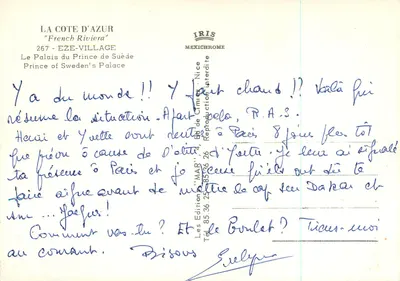 LA COTE D'AZUR
"French Riviera"
287 - EZE-VILLAGE
Le Palais du Prince de Suède
Prince of Sweden's Palace
IRIS
MEXICHROME
Les Editions "MAR" Nice
Tél. 85 36 25 Reproduction interdite
Y a du monde !! Y fait chaud !! Voilà qui
résume la situation. A part cela, R.A.S.
Henri et Yvette sont rentrés à Paris 8 jours plus tôt
que prévu à cause de l'otite d'Yvette. Je leur ai signalé
ta présence à Paris et je pense qu'ils ont dû te
faire signe avant de mettre le cap sur Dakar et
sur ...
Comment vas-tu ? Et le Poulet ? Tiens-moi
au courant. Bisous
Evelyne